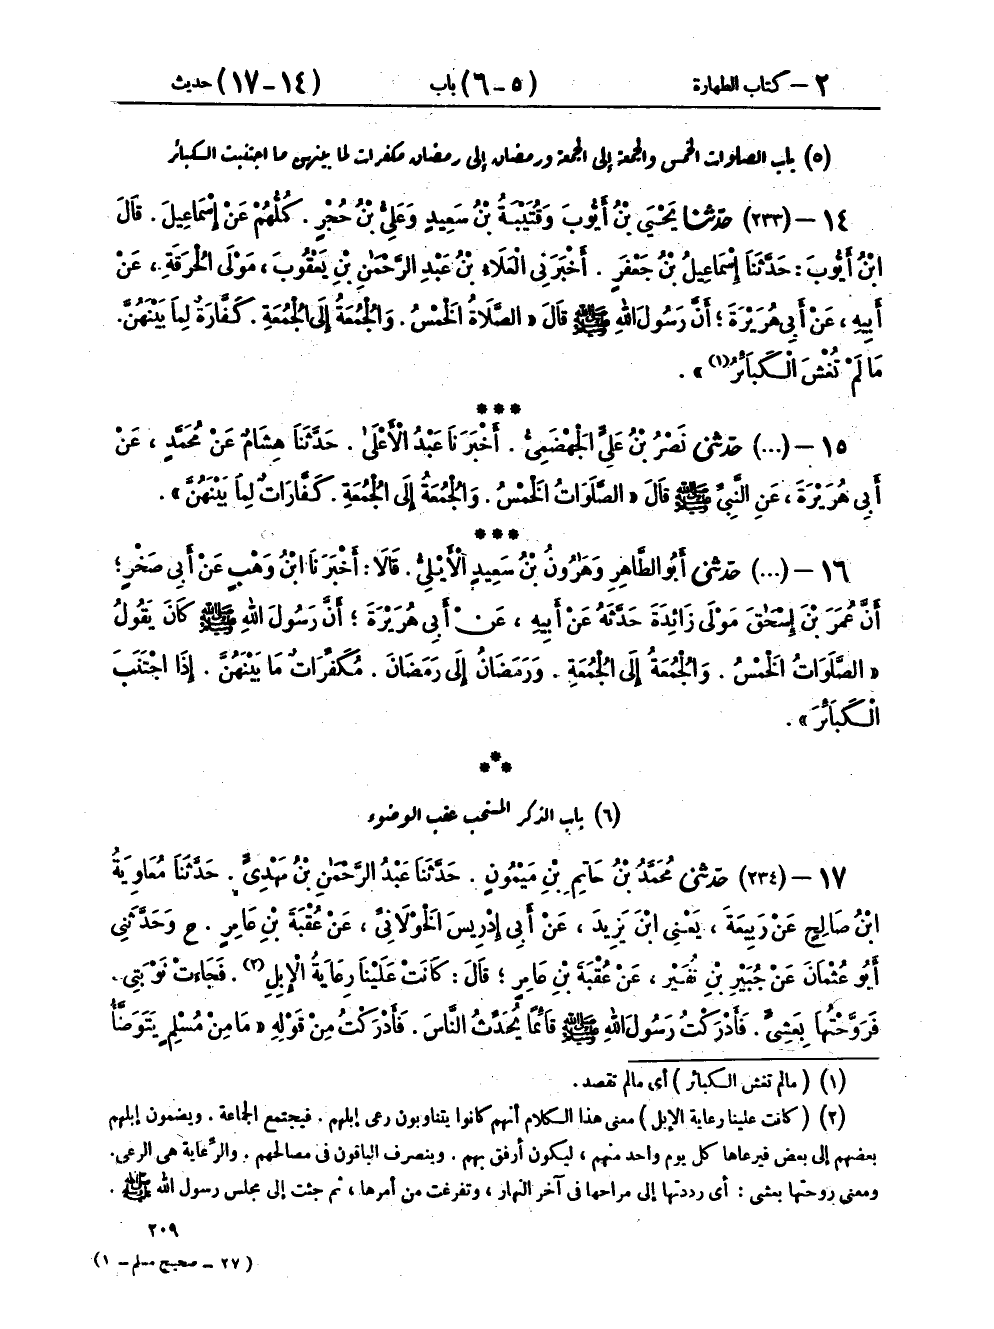 ٢ – كتاب الطهارة (٥ – ٦) باب (١٤ – ١٧) حديث
(٥) باب الصلوات الخمس والجمعة إلى الجمعة ورمضان إلى رمضان مكفرات لما بينهن ما اجتنبت الكبائر
١٤ – (٢٣٣) حدثنا يَحْيَى بْنُ أَيُّوبَ وَقُتَيْبَةُ بْنُ سَعِيدٍ وَعَلِيُّ بْنُ حُجْرٍ . كُلُّهُمْ عَنْ إِسْمَاعِيلَ . قَالَ
ابْنُ أَيُّوبَ : حَدَّثَنَا إِسْمَاعِيلُ بْنُ جَعْفَرٍ . أَخْبَرَنِي الْعَلَاءُ بْنُ عَبْدِ الرَّحْمَٰنِ بْنِ يَعْقُوبَ ، مَوْلَى الْحُرَقَةِ ، عَنْ
أَبِيهِ ، عَنْ أَبِي هُرَيْرَةَ ؛ أَنَّ رَسُولَ اللهِ ﷺ قَالَ « الصَّلَاةُ الْخَمْسُ . وَالْجُمُعَةُ إِلَى الْجُمُعَةِ . كَفَّارَةٌ لِمَا بَيْنَهُنَّ .
مَا لَمْ تُغْشَ الْكَبَائِرُ(١) » .
***
١٥ – (...) حدثني نَصْرُ بْنُ عَلِيٍّ الْجَهْضَمِيُّ . أَخْبَرَنَا عَبْدُ الْأَعْلَىٰ . حَدَّثَنَا هِشَامٌ عَنْ مُحَمَّدٍ ، عَنْ
أَبِي هُرَيْرَةَ ، عَنِ النَّبِيِّ ﷺ قَالَ « الصَّلَوَاتُ الْخَمْسُ . وَالْجُمُعَةُ إِلَى الْجُمُعَةِ . كَفَّارَاتٌ لِمَا بَيْنَهُنَّ » .
***
١٦ – (...) حدثني أَبُو الطَّاهِرِ وَهَٰرُونُ بْنُ سَعِيدٍ الْأَيْلِيُّ . قَالَا : أَخْبَرَنَا ابْنُ وَهْبٍ عَنْ أَبِي صَخْرٍ ؛
أَنَّ عُمَرَ بْنَ إِسْحَٰقَ مَوْلَى زَائِدَةَ حَدَّثَهُ عَنْ أَبِيهِ ، عَنْ أَبِي هُرَيْرَةَ ؛ أَنَّ رَسُولَ اللهِ ﷺ كَانَ يَقُولُ
« الصَّلَوَاتُ الْخَمْسُ . وَالْجُمُعَةُ إِلَى الْجُمُعَةِ . وَرَمَضَانُ إِلَى رَمَضَانَ . مُكَفِّرَاتٌ مَا بَيْنَهُنَّ . إِذَا اجْتَنَبَ
الْكَبَائِرَ » .
***
(٦) باب الذكر المستحب عقب الوضوء
١٧ – (٢٣٤) حدثني مُحَمَّدُ بْنُ حَاتِمِ بْنِ مَيْمُونٍ . حَدَّثَنَا عَبْدُ الرَّحْمَٰنِ بْنُ مَهْدِيٍّ . حَدَّثَنَا مُعَاوِيَةُ
ابْنُ صَالِحٍ عَنْ رَبِيعَةَ ، يَعْنِي ابْنَ يَزِيدَ ، عَنْ أَبِي إِدْرِيسَ الْخَوْلَانِيِّ ، عَنْ عُقْبَةَ بْنِ عَامِرٍ . ح وَحَدَّثَنِي
أَبُو عُثْمَانَ عَنْ جُبَيْرِ بْنِ نُفَيْرٍ ، عَنْ عُقْبَةَ بْنِ عَامِرٍ ؛ قَالَ : كَانَتْ عَلَيْنَا رِعَايَةُ الْإِبِلِ(٢) . فَجَاءَتْ نَوْبَتِي .
فَرَوَّحْتُهَا بِعَشِيٍّ . فَأَدْرَكْتُ رَسُولَ اللهِ ﷺ قَائِمًا يُحَدِّثُ النَّاسَ . فَأَدْرَكْتُ مِنْ قَوْلِهِ « مَا مِنْ مُسْلِمٍ يَتَوَضَّأُ
(١) ( مالم تغش الكبائر ) أى مالم تقصد .
(٢) ( كانت علينا رعاية الإبل ) معنى هذا الكلام أنهم كانوا يتناوبون رعى إبلهم . فيجتمع الجماعة . ويضمون إبلهم
بعضهم إلى بعض فيرعاها كل يوم واحد منهم ، ليكون أرفق بهم . وينصرف الباقون فى مصالحهم . والرِّعاية هى الرعى.
ومعنى روحتها بعشى : أى رددتها إلى مراحها فى آخر النهار ، وتفرغت من أمرها ، ثم جئت إلى مجلس رسول الله ﷺ .
٢٠٩
( ٢٧ – صحيح مسلم – ١ )